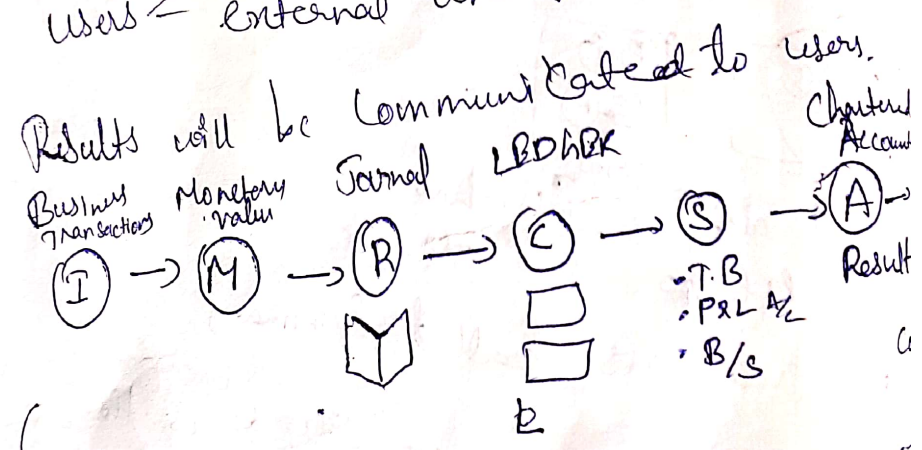 users - external
Results will be Communicated to users.
Business Transactions
Monetary value
Journal
LEDGER
Chartered Account
I → M → R → C → S → A →
• T.B
• P&L A/c
• B/S
Result